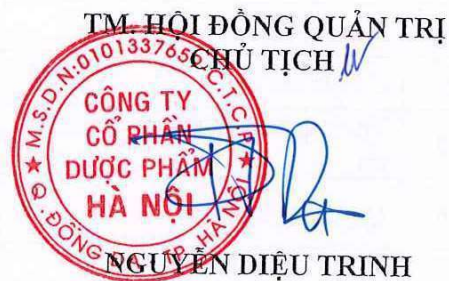 TM. HỘI ĐỒNG QUẢN TRỊ
CHỦ TỊCH
M.S.D.N:0101337656.C.T.C.P
CÔNG TY
CỔ PHẦN
DƯỢC PHẨM
HÀ NỘI
Q. ĐỐNG ĐA - TP. HÀ NỘI
NGUYỄN DIỆU TRINH